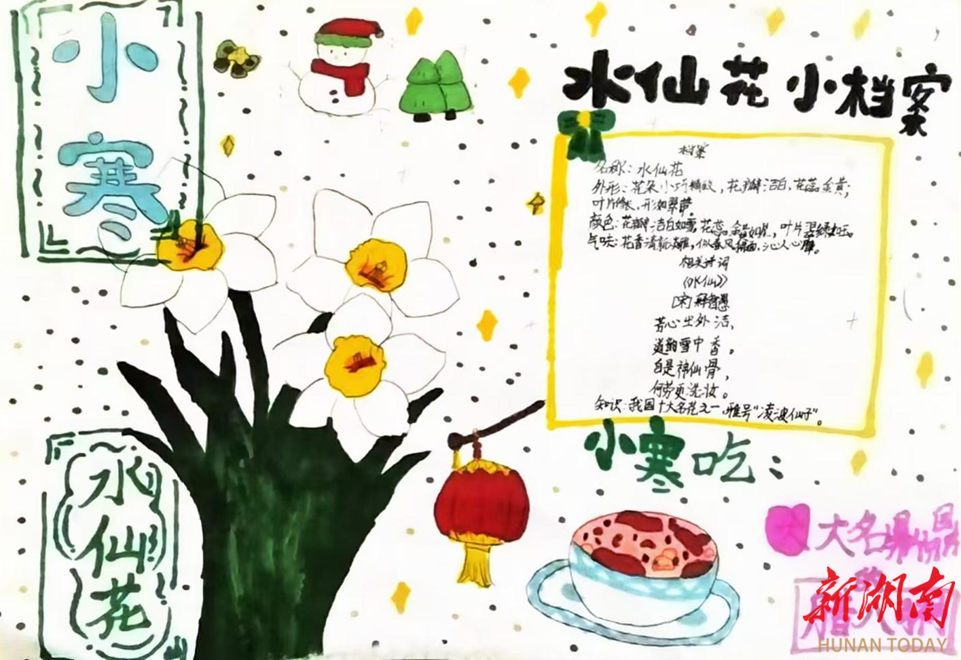 小寒
水仙花小档案
档案
名称：水仙花
外形：花朵小巧精致，花瓣洁白，花蕊金黄；
叶片修长，形如翠带。
颜色：花瓣洁白如雪，花蕊金黄如，叶片翠绿如玉。
气味：花香清新淡雅，似春风拂面，沁人心脾。
相关诗词
《水仙》
[宋]释
芳心尘外洁，
道韵雪中香。
自是神仙骨，
何劳更洗妆。
知识：我国十大名花之一，雅号“凌波仙子”。
小寒吃：
水仙花
大名鼎鼎
新湖南
HUNAN TODAY